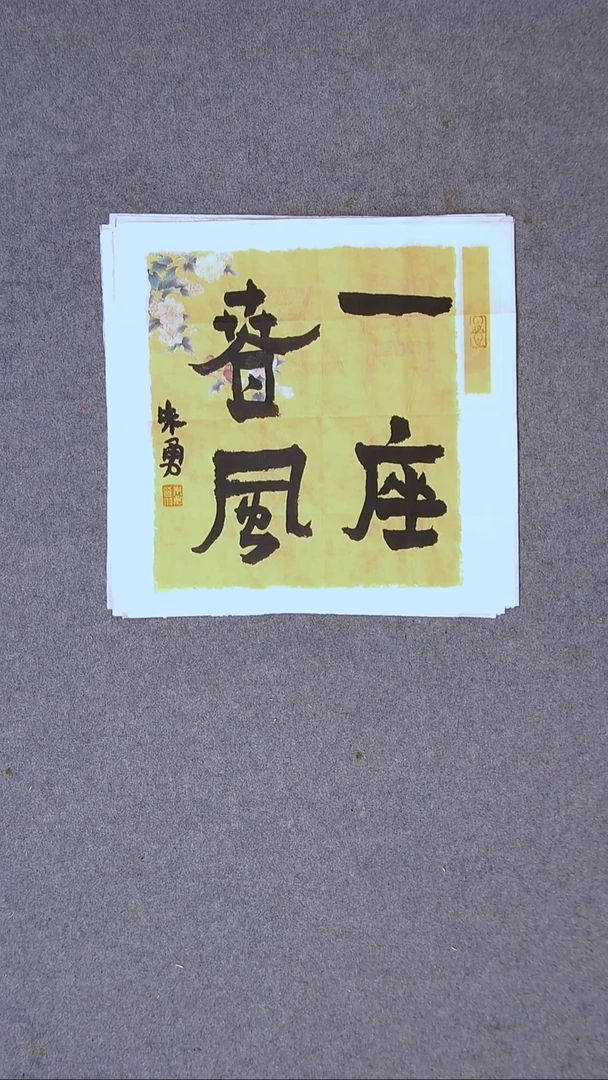 一座
春風
朱勇